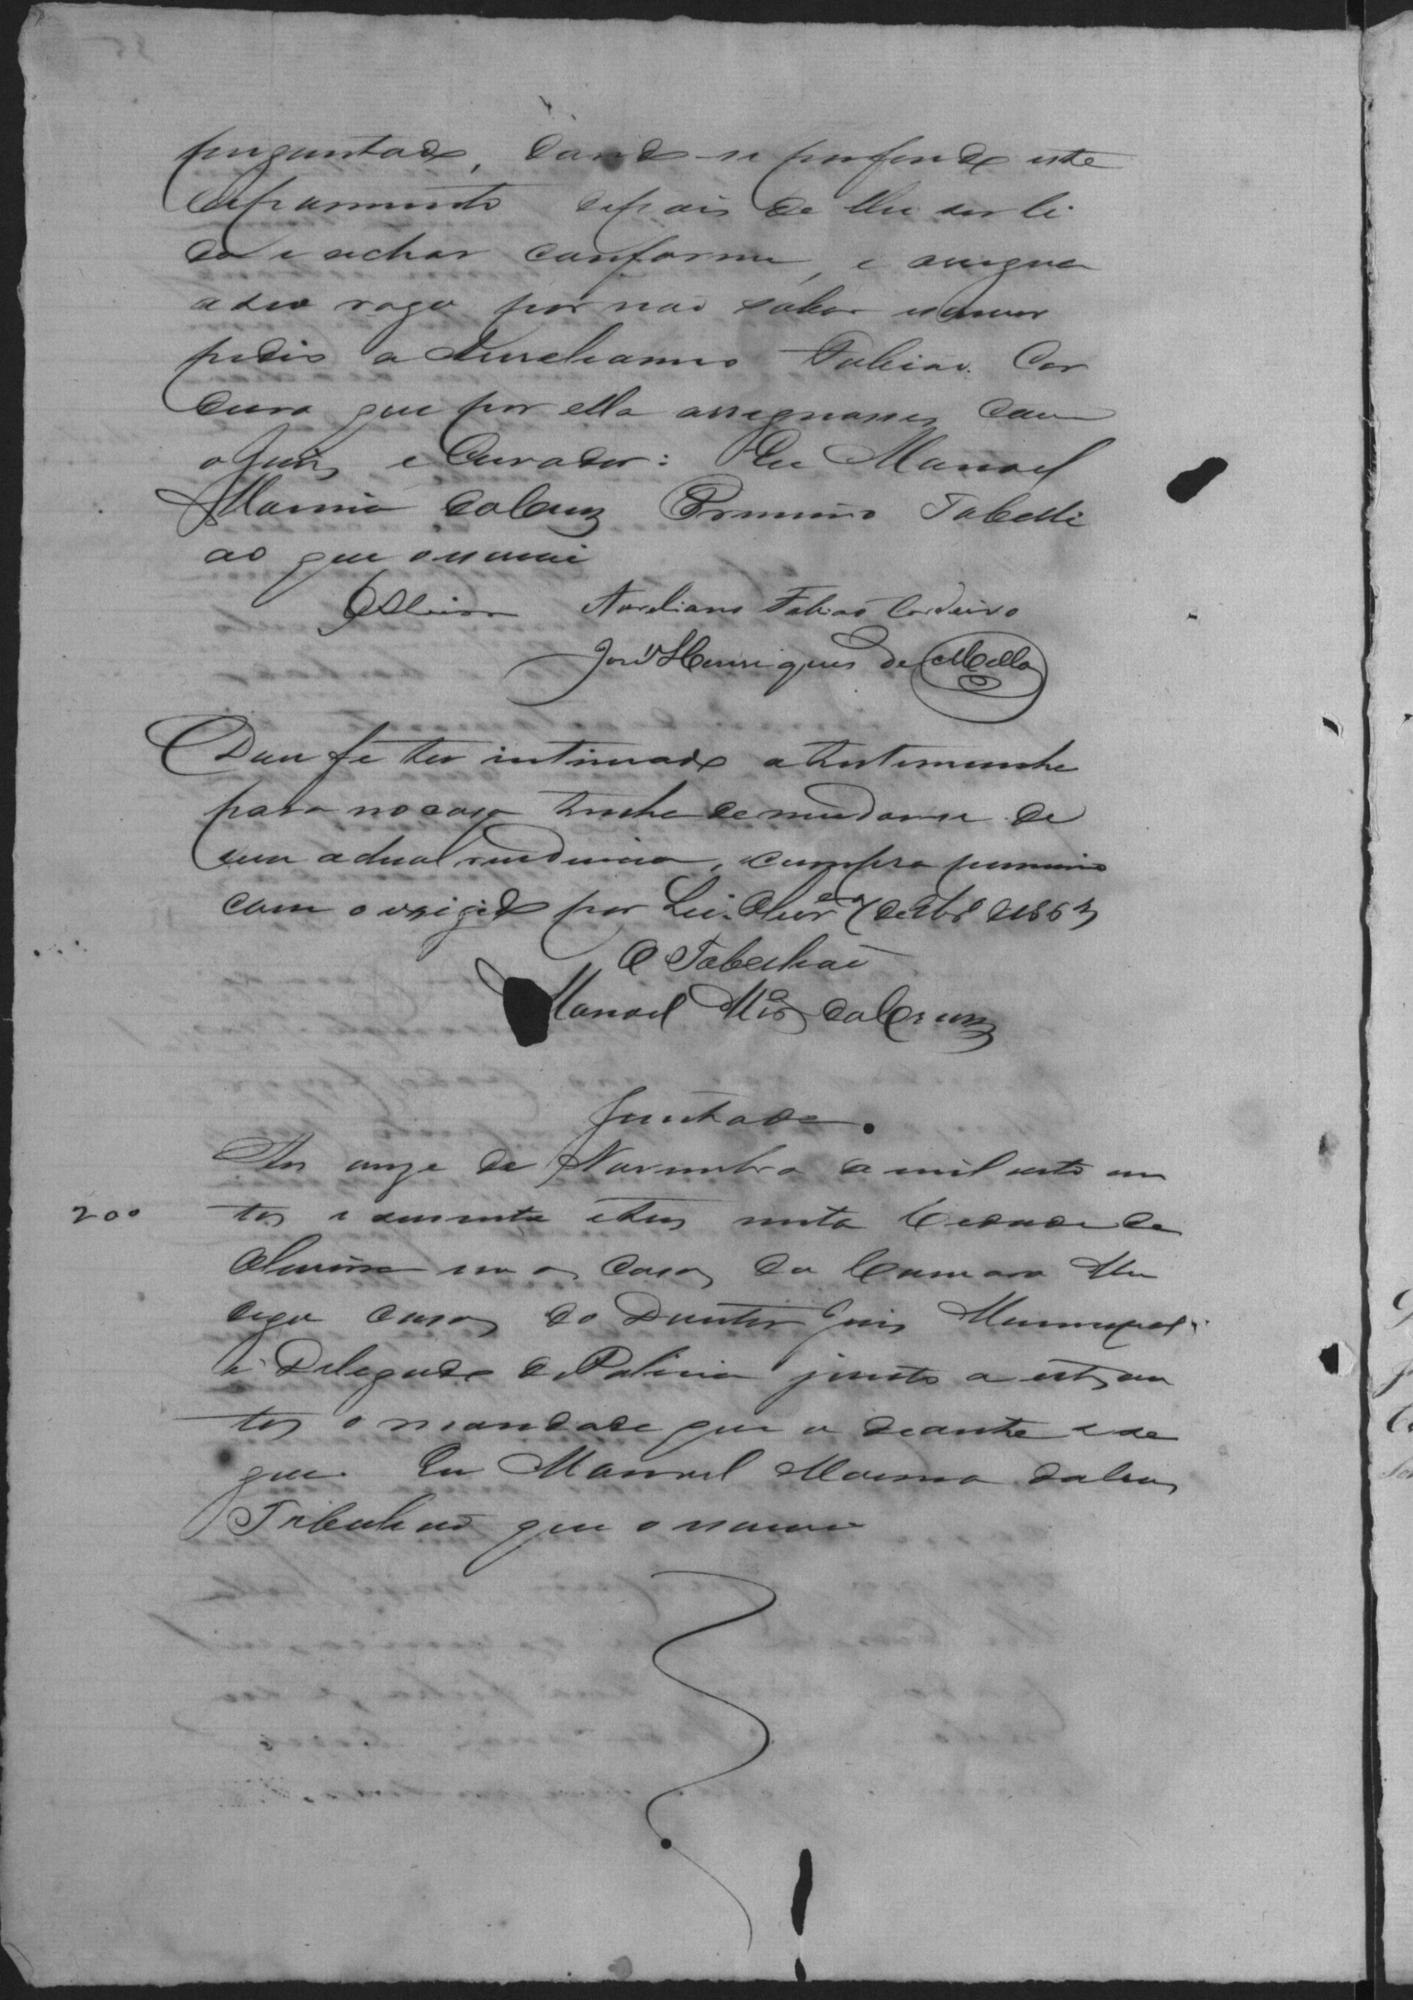 perguntado, dando-se por findo este
depoimento depois de lhe ser li
do e achar conforme, e assigna
a seu rogo por não saber escrever
pedio a Aurelianno Fabião Cor
deiro que por ella assignasse, com
o Juiz, e Curador: Eu Manoel
Marinho da Cruz Tabelli
ão que o escrevi
Oliveira Aureliano Fabião Cordeiro
José Henriques de Mello
Dou fé ter intimado a testemunha
para no caso tenha de mudar-se de
sua actual residencia,
com o exigido por Lei. 7 de 9br.º de 186
O Tabelião
Manoel da Cruz
Juntada.
Aos onze de Novembro de mil oito cen
200 tos e sessenta e nesta Cidade de
em as casas da Camara
digo casas do Doutor Juiz Municipal
e Delegado de Policia junto a estes au
tos o mandado que a deante se se
gue. Eu Manoel da Cruz
Tabelião que o escrevi